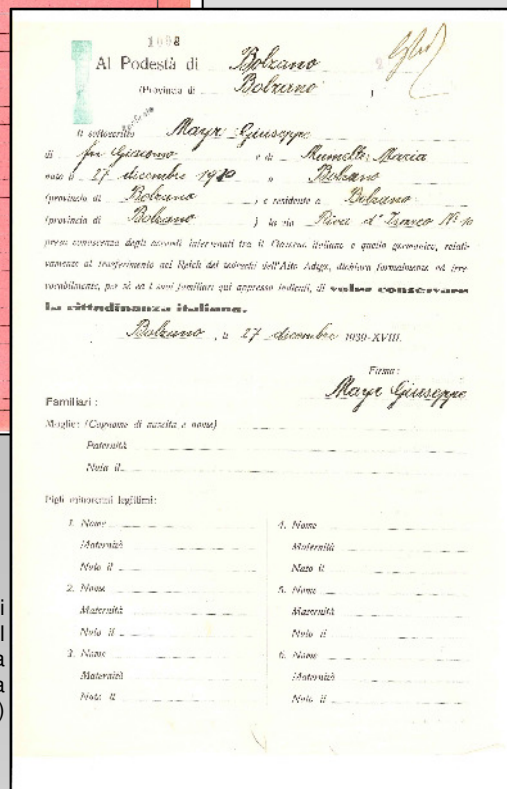 1698
Al Podestà di Bolzano
(Provincia di Bolzano)
Il sottoscritto Mayr Giuseppe
di fu Giacomo e di Maria
nato il 27 dicembre a Bolzano
(provincia di Bolzano), e residente a Bolzano
(provincia di Bolzano) in via d'Isarco Nº 10
presa conoscenza degli accordi intervenuti tra il Governo italiano e quello germanico, relati-
vamente al trasferimento nel Reich dei tedeschi dell'Alto Adige, dichiara formalmente ed irre-
vocabilmente, per sè ed i suoi familiari qui appresso indicati, di voler conservare
la cittadinanza italiana.
Bolzano, a 27 dicembre 1939-XVIII.
Firma:
Mayr Giuseppe
Familiari:
Moglie: (Cognome di nascita e nome)
Paternità
Nata il
Figli minorenni legittimi:
1. Nome
Maternità
Nato il
2. Nome
Maternità
Nato il
3. Nome
Maternità
Nato il
4. Nome
Maternità
Nato il
5. Nome
Maternità
Nato il
6. Nome
Maternità
Nato il